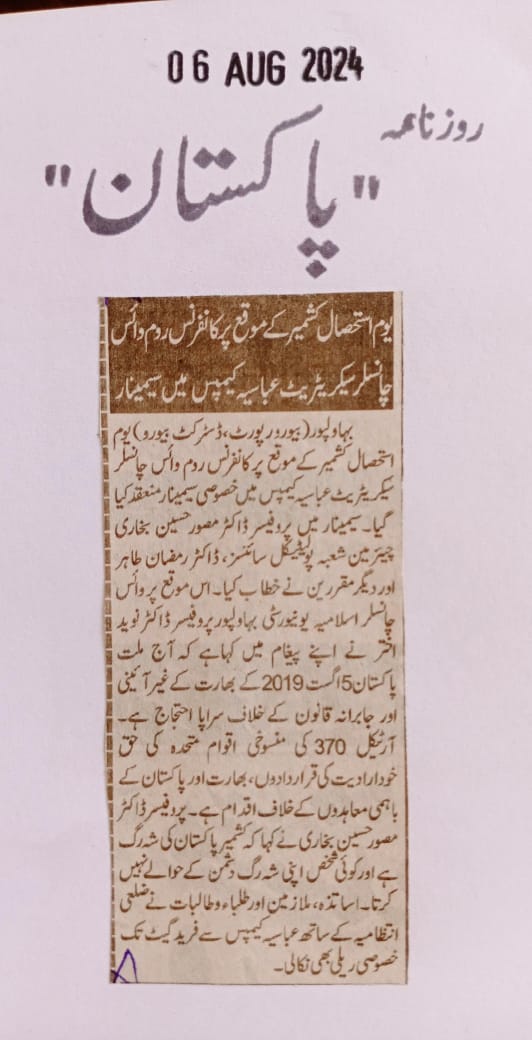 06 AUG 2024
روزنامہ
"پاکستان"
یوم استحصال کشمیر کے موقع پر کانفرنس روم وائس
چانسلر سیکریٹریٹ عباسیہ کیمپس میں سیمینار
بہاولپور (بیورو رپورٹ، ڈسٹرکٹ بیورو) یوم
استحصال کشمیر کے موقع پر کانفرنس روم وائس چانسلر
سیکریٹریٹ عباسیہ کیمپس میں خصوصی سیمینار منعقد کیا
گیا۔ سیمینار میں پروفیسر ڈاکٹر مصور حسین بخاری
چیئرمین شعبہ پولیٹیکل سائنسز، ڈاکٹر رمضان طاہر
اور دیگر مقررین نے خطاب کیا۔ اس موقع پر وائس
چانسلر اسلامیہ یونیورسٹی بہاولپور پروفیسر ڈاکٹر نوید
اختر نے اپنے پیغام میں کہا ہے کہ آج ملت
پاکستان 5 اگست 2019 کے بھارت کے غیر آئینی
اور جابرانہ قانون کے خلاف سراپا احتجاج ہے۔
آرٹیکل 370 کی منسوخی اقوام متحدہ کی حق
خودارادیت کی قراردادوں، بھارت اور پاکستان کے
باہمی معاہدوں کے خلاف اقدام ہے۔ پروفیسر ڈاکٹر
مصور حسین بخاری نے کہا کہ کشمیر پاکستان کی شہ رگ
ہے اور کوئی شخص اپنی شہ رگ دشمن کے حوالے نہیں
کرتا۔ اساتذہ، ملازمین اور طلباء و طالبات نے ضلعی
انتظامیہ کے ساتھ عباسیہ کیمپس سے فرید گیٹ تک
خصوصی ریلی بھی نکالی۔